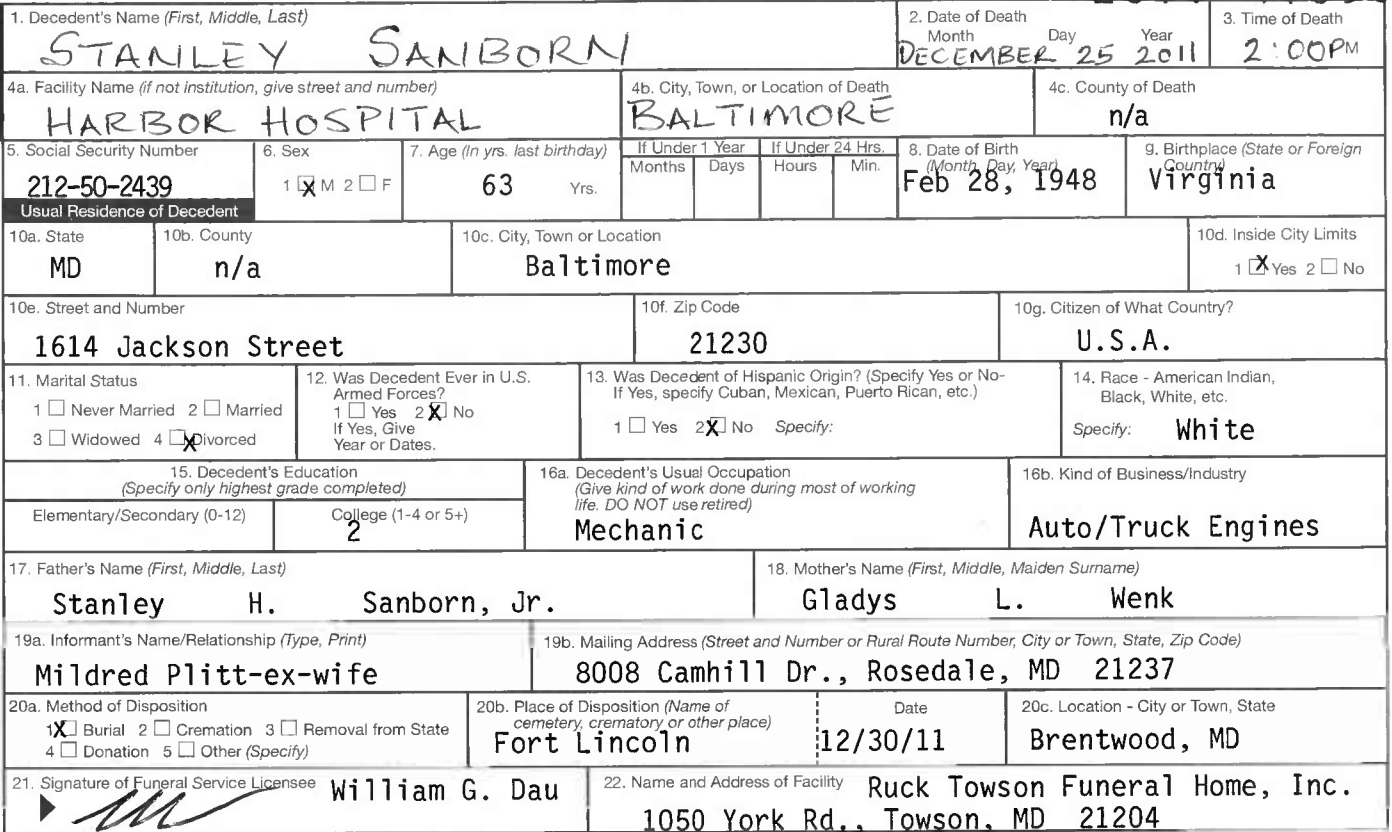 1. Decedent's Name (First, Middle, Last)
STANLEY SANBORN
2. Date of Death
Month Day Year
DECEMBER 25 2011
3. Time of Death
2:00PM
4a. Facility Name (if not institution, give street and number)
HARBOR HOSPITAL
4b. City, Town, or Location of Death
BALTIMORE
4c. County of Death
n/a
5. Social Security Number
212-50-2439
6. Sex
1 X M 2 ☐ F
7. Age (In yrs. last birthday)
63 Yrs.
If Under 1 Year
Months Days
If Under 24 Hrs.
Hours Min.
8. Date of Birth
(Month, Day, Year)
Feb 28, 1948
9. Birthplace (State or Foreign
Country)
Virginia
Usual Residence of Decedent
10a. State
MD
10b. County
n/a
10c. City, Town or Location
Baltimore
10d. Inside City Limits
1 X Yes 2 ☐ No
10e. Street and Number
1614 Jackson Street
10f. Zip Code
21230
10g. Citizen of What Country?
U.S.A.
11. Marital Status
1 ☐ Never Married 2 ☐ Married
3 ☐ Widowed 4 X Divorced
12. Was Decedent Ever in U.S.
Armed Forces?
1 ☐ Yes 2 X No
If Yes, Give
Year or Dates.
13. Was Decedent of Hispanic Origin? (Specify Yes or No-
If Yes, specify Cuban, Mexican, Puerto Rican, etc.)
1 ☐ Yes 2 X No Specify:
14. Race - American Indian,
Black, White, etc.
Specify: White
15. Decedent's Education
(Specify only highest grade completed)
Elementary/Secondary (0-12)
College (1-4 or 5+)
2
16a. Decedent's Usual Occupation
(Give kind of work done during most of working
life. DO NOT use retired)
Mechanic
16b. Kind of Business/Industry
Auto/Truck Engines
17. Father's Name (First, Middle, Last)
Stanley H. Sanborn, Jr.
18. Mother's Name (First, Middle, Maiden Surname)
Gladys L. Wenk
19a. Informant's Name/Relationship (Type, Print)
Mildred Plitt-ex-wife
19b. Mailing Address (Street and Number or Rural Route Number, City or Town, State, Zip Code)
8008 Camhill Dr., Rosedale, MD 21237
20a. Method of Disposition
1 X Burial 2 ☐ Cremation 3 ☐ Removal from State
4 ☐ Donation 5 ☐ Other (Specify)
20b. Place of Disposition (Name of
cemetery, crematory or other place)
Fort Lincoln
Date
12/30/11
20c. Location - City or Town, State
Brentwood, MD
21. Signature of Funeral Service Licensee William G. Dau
22. Name and Address of Facility Ruck Towson Funeral Home, Inc.
1050 York Rd., Towson, MD 21204